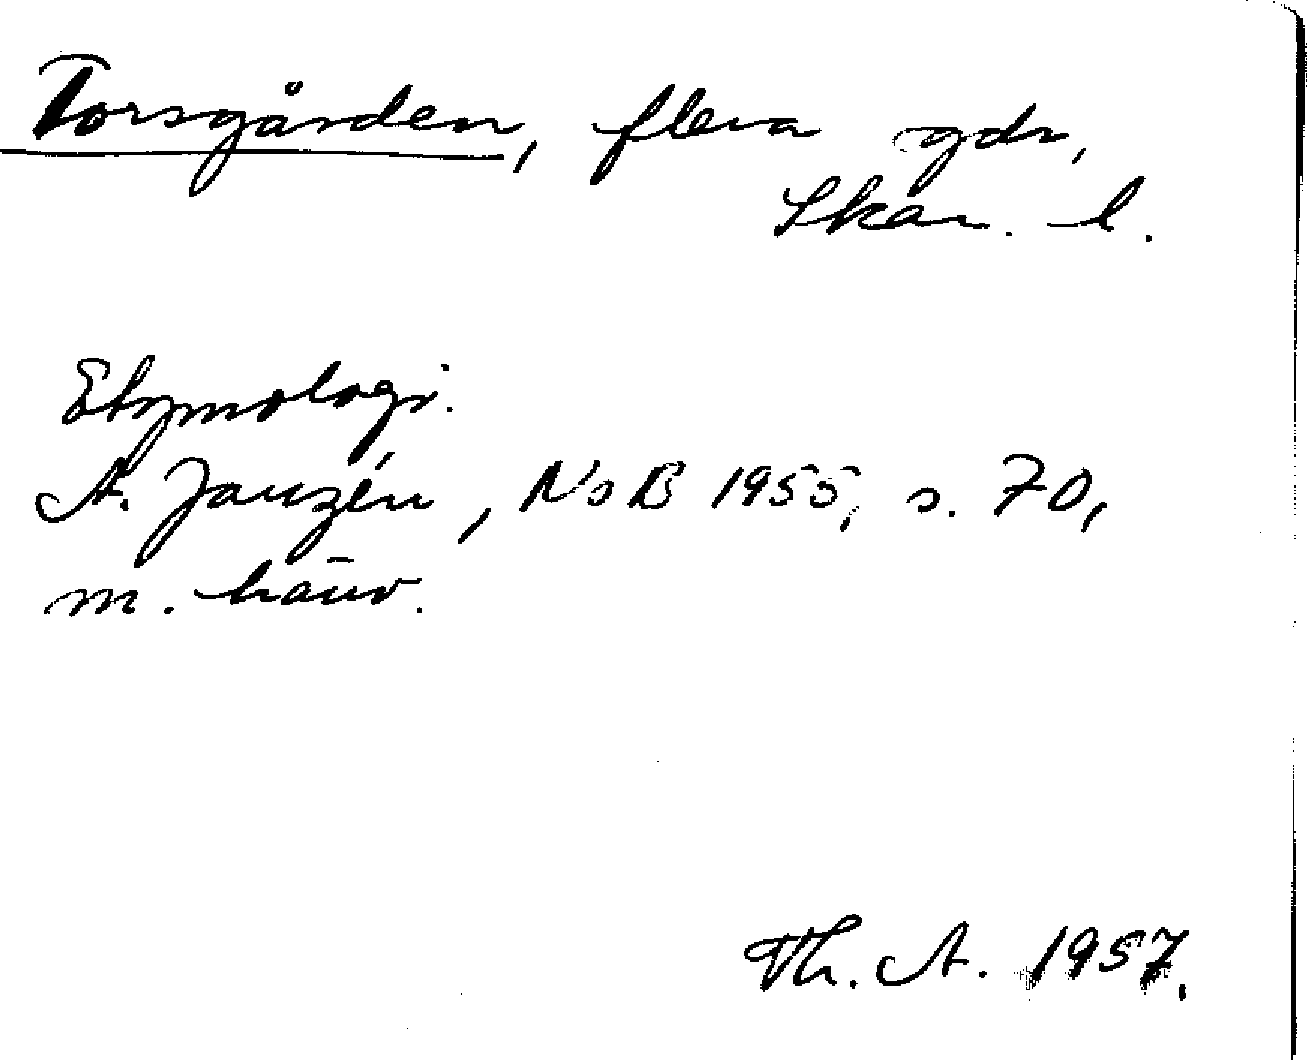 Torsgården, flera gdr,
Skar. l.
Etymologi.
A. Janzén, NoB 1955, s. 70,
m. hänv.
Th. A. 1957.